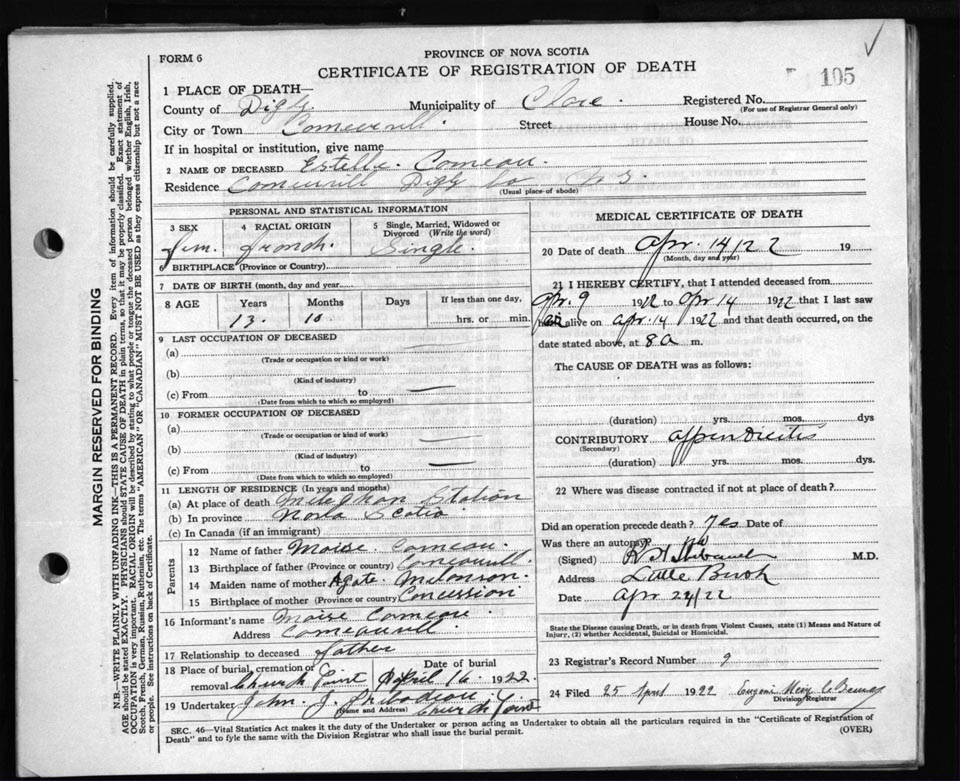 FORM 6
PROVINCE OF NOVA SCOTIA
CERTIFICATE OF REGISTRATION OF DEATH
105
1 PLACE OF DEATH—
County of Digby Municipality of Clare. Registered No.
(For use of Registrar General only)
City or Town Comeuvill. Street House No.
If in hospital or institution, give name
2 NAME OF DECEASED Estelle Comeau.
Residence Comeuvill Digby Co N S.
(Usual place of abode)
PERSONAL AND STATISTICAL INFORMATION
3 SEX 4 RACIAL ORIGIN 5 Single, Married, Widowed or Divorced (Write the word)
fem. french. Single.
6 BIRTHPLACE (Province or Country)
7 DATE OF BIRTH (month, day and year)
8 AGE Years Months Days If less than one day,
13. 10 hrs. or min.
9 LAST OCCUPATION OF DECEASED
(a)
(Trade or occupation or kind or work)
(b)
(Kind of industry)
(c) From to
(Date from which to which so employed)
10 FORMER OCCUPATION OF DECEASED
(a)
(Trade or occupation or kind of work)
(b)
(Kind of industry)
(c) From to
(Date from which to which so employed)
11 LENGTH OF RESIDENCE (In years and months)
(a) At place of death Meteghan Station
(b) In province Nova Scotia
(c) In Canada (if an immigrant)
Parents
12 Name of father Moise. Comeau.
13 Birthplace of father (Province or Country) Comeauvill.
14 Maiden name of mother Agate. Melonson.
15 Birthplace of mother (Province or country) Concession
16 Informant's name Moise Comeau
Address Comeauvill.
17 Relationship to deceased father
18 Place of burial, cremation or removal Church Point Date of burial April 16 1922
19 Undertaker John. J. Thibodeau Church Point
(Name and Address)
MEDICAL CERTIFICATE OF DEATH
20 Date of death Apr. 14/22 19
(Month, day and year)
21 I HEREBY CERTIFY, that I attended deceased from
Apr. 9 1922 to Apr 14 1922 that I last saw
alive on apr. 14 1922 and that death occurred, on the
date stated above, at 8 a m.
The CAUSE OF DEATH was as follows:
(duration) yrs. mos. dys
CONTRIBUTORY appendicitis
(Secondary)
(duration) yrs. mos. dys.
22 Where was disease contracted if not at place of death?
Did an operation precede death? Yes Date of
Was there an autopsy? No
(Signed) M.D.
Address Little Brook
Date Apr 24/22
State the Disease causing Death, or in death from Violent Causes, state (1) Means and Nature of Injury, (2) whether Accidental, Suicidal or Homicidal.
23 Registrar's Record Number 9
24 Filed 25 April 1922
Division Registrar
SEC. 46—Vital Statistics Act makes it the duty of the Undertaker or person acting as Undertaker to obtain all the particulars required in the "Certificate of Registration of
Death" and to fyle the same with the Division Registrar who shall issue the burial permit. (OVER)
MARGIN RESERVED FOR BINDING
N.B.—WRITE PLAINLY WITH UNFADING INK—THIS IS A PERMANENT RECORD. Every item of information should be carefully supplied.
AGE should be stated EXACTLY. PHYSICIANS should STATE CAUSE OF DEATH in plain terms, so that it may be properly classified. Exact statement of
OCCUPATION is very important. RACIAL ORIGIN will be described by stating to what people or tongue the deceased person belonged whether English, Irish,
Scotch, French, German, Russian, Ruthenian, etc. The terms "AMERICAN" or "CANADIAN" MUST NOT BE USED as they express citizenship but not a race
or people. See instructions on back of Certificate.